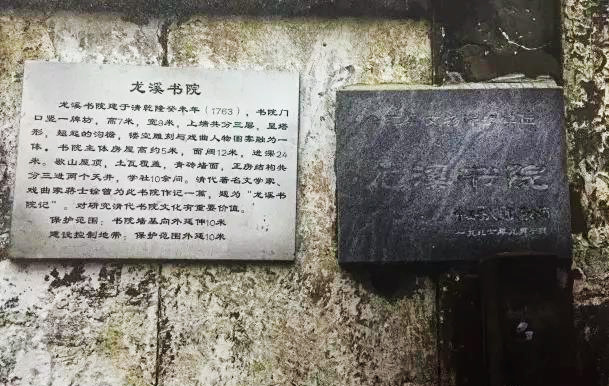 龙溪书院
龙溪书院建于清乾隆癸未年（1763），书院门
口竖一牌坊，高7米，宽8米，上端共分三层，呈塔
形，翘起的沟檐，镂空雕刻与戏曲人物图案融为一
体。书院主体房屋高约5米，面阔12米，进深24
米。歇山屋顶，土瓦覆盖，青砖墙面，正房结构共
分三进两个天井，学社10余间。清代著名文学家、
戏曲家蒋士铨曾为此书院作记一篇，题为“龙溪书
院记”。对研究清代书院文化有重要价值。
保护范围：书院墙基向外延伸10米
建设控制地带：保护范围外延10米
龙溪书院
一九八七年九月